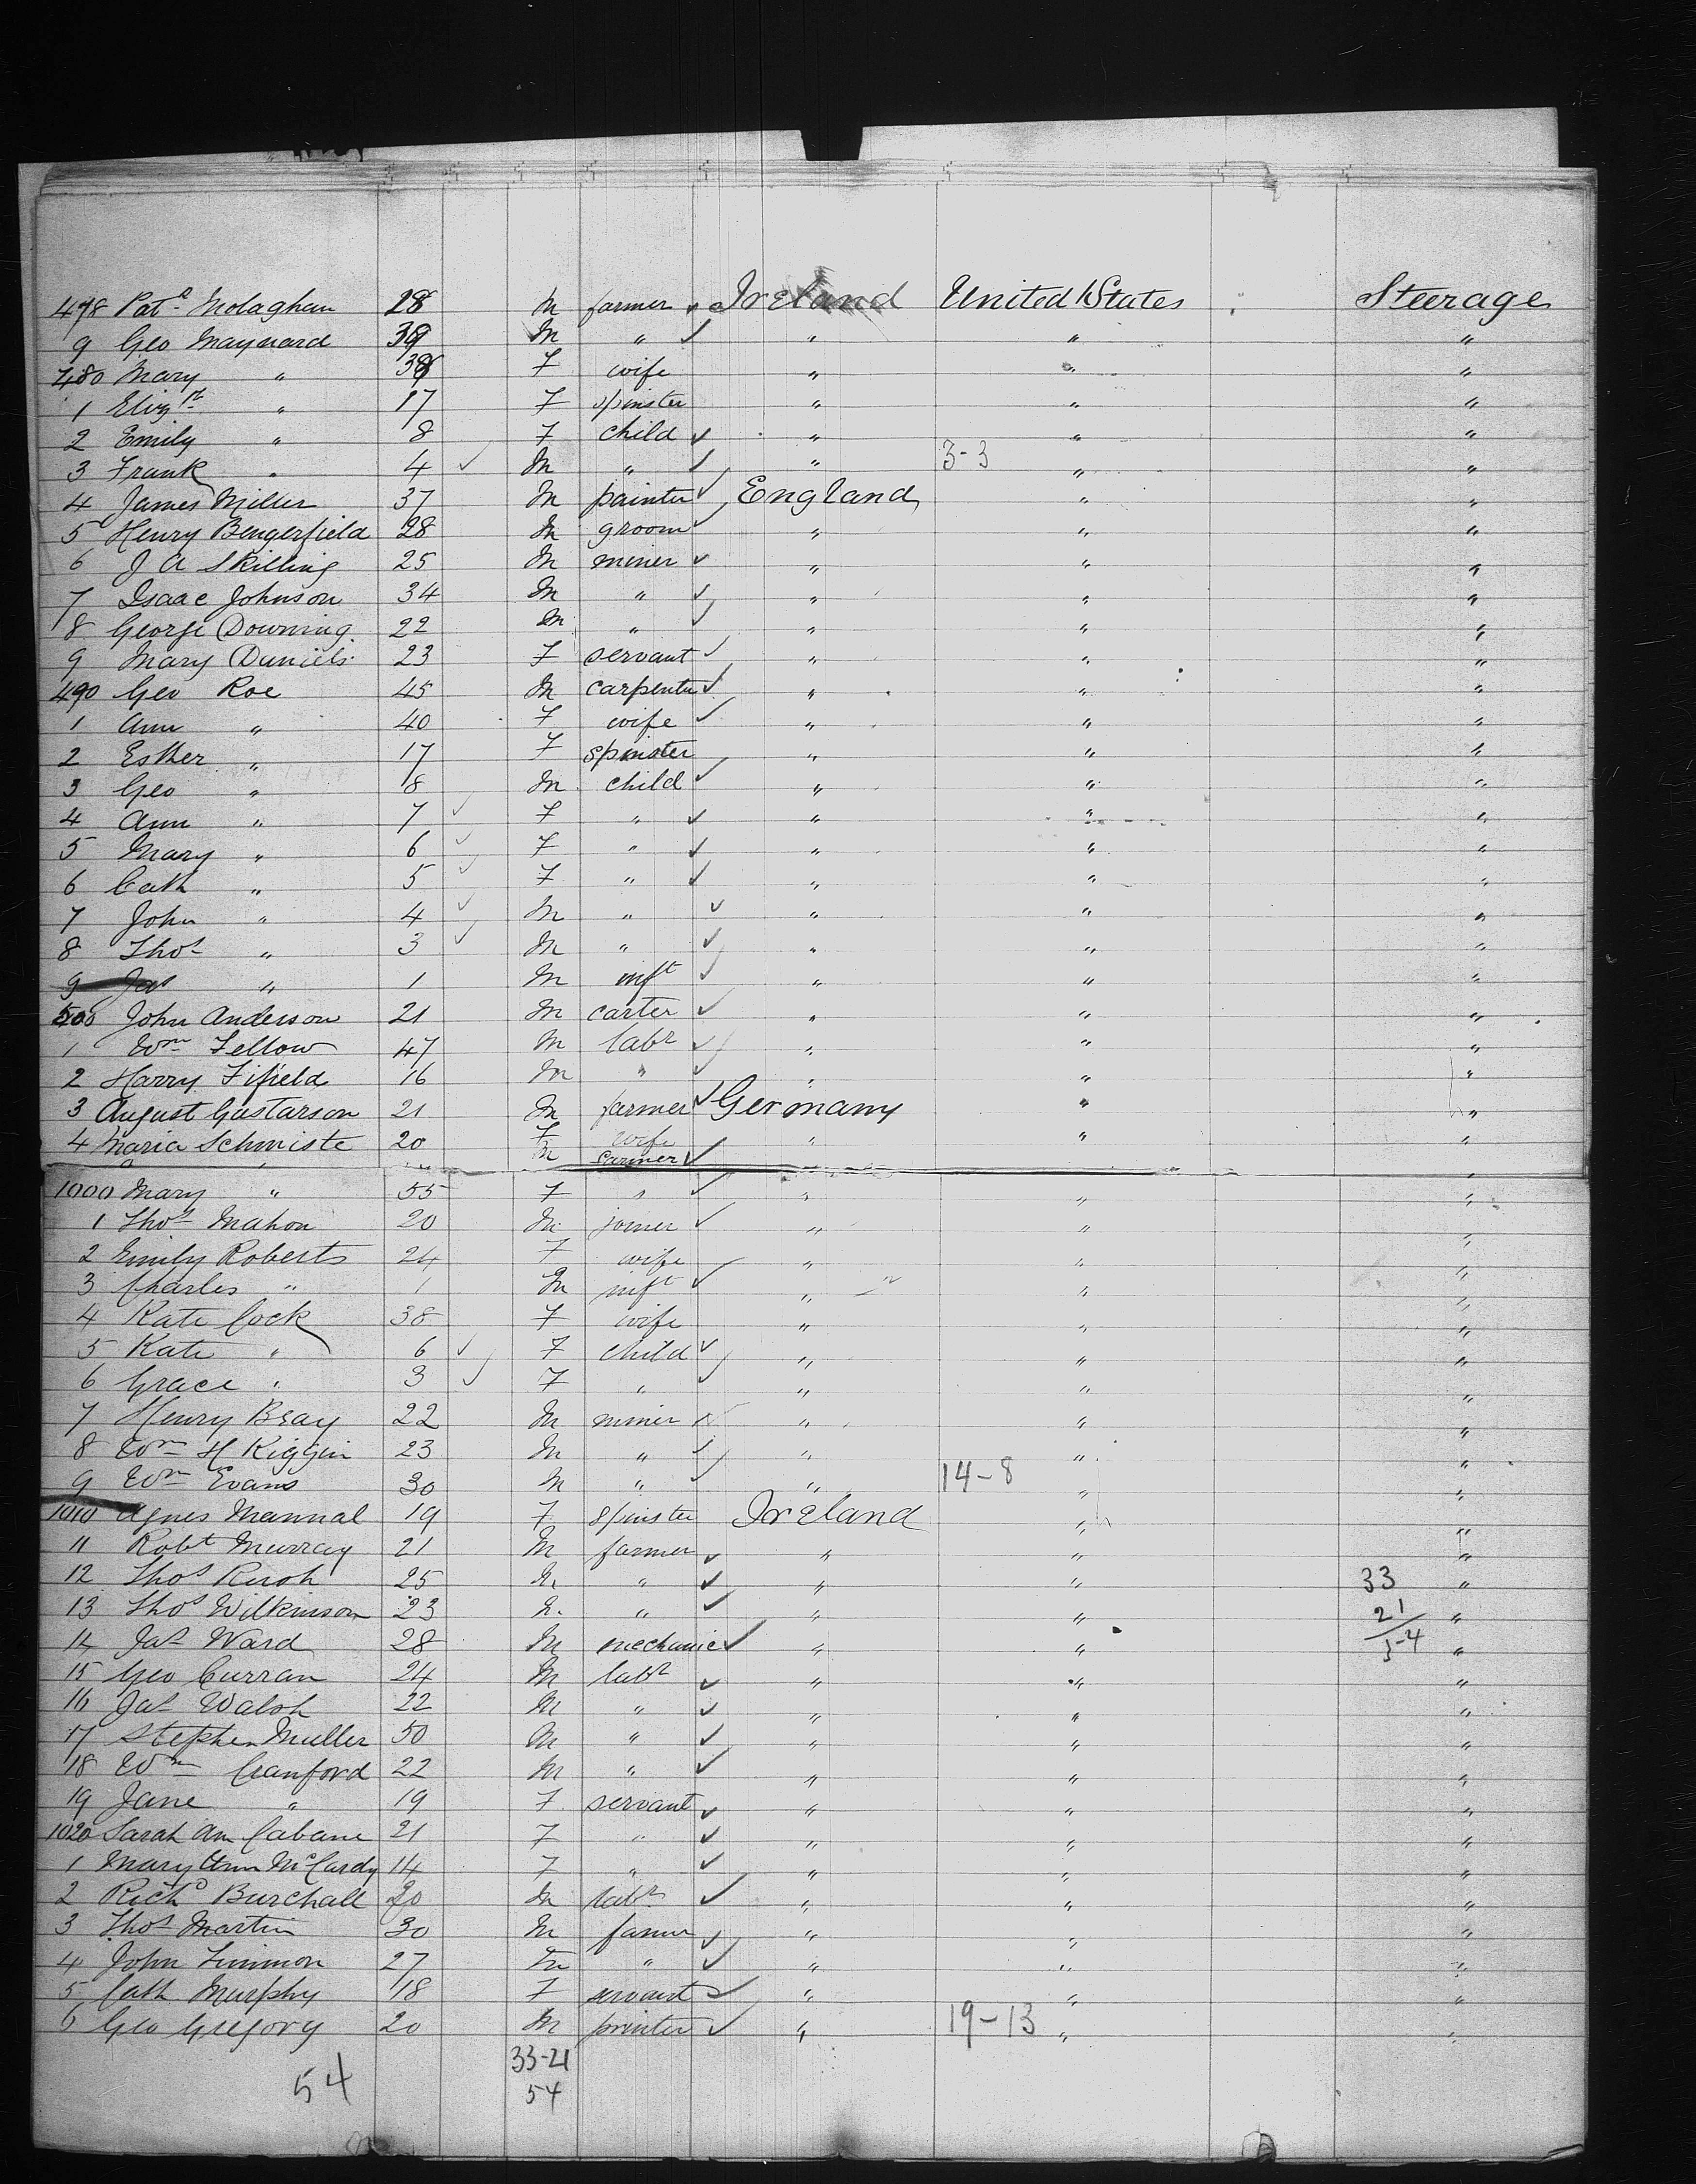 478 Patk Molaghan 28 M farmer Ireland United States Steerage
9 Geo Maynard 39 M " " " "
480 Mary " 38 F wife " " "
1 Elizth " 17 F spinster " " "
2 Emily " 8 F child " " "
3 Frank " 4 M " " 3-3 " "
4 James Miller 37 M painter England " "
5 Henry Bengerfield 28 M groom " " "
6 J A Skilling 25 M miner " " "
7 Isaac Johnson 34 M " " " "
8 George Downing 22 M " " " "
9 Mary Daniels 23 F servant " " "
490 Geo Roe 45 M carpenter " " "
1 Ann " 40 F wife " " "
2 Esther " 17 F spinster " " "
3 Geo " 8 M child " " "
4 Ann " 7 F " " " "
5 Mary " 6 F " " " "
6 Cath " 5 F " " " "
7 John " 4 M " " " "
8 Thos " 3 M " " " "
9 Jas " 1 M inft " " "
500 John Anderson 21 M carter " " "
1 Wm Fellow 47 M labr " " "
2 Harry Fifield 16 M " " " "
3 August Gustarson 21 M farmer Germany " "
4 Maria Schmiste 20 F wife " " "
M farmer
1000 Mary " 55 F " " " "
1 Thos Mahon 20 M joiner " " "
2 Emily Roberts 24 F wife " " "
3 Charles " 1 M inft " " "
4 Kate Cock 38 F wife " " "
5 Kate " 6 F child " " "
6 Grace " 3 F " " " "
7 Henry Bray 22 M miner " " "
8 Wm H Kiggin 23 M " " " "
9 Wm Evans 30 M " " 14-8 " "
1010 Agnes Mannal 19 F spinster Ireland " "
11 Robt Murray 21 M farmer " " "
12 Thos 25 M " " " 33 "
13 Thos Wilkinson 23 M " " " 21 "
14 Jas Ward 28 M mechanic " " 54 "
15 Geo Curran 24 M labr " " "
16 Jas Walsh 22 M " " " "
17 Stephen Muller 50 M " " " "
18 Wm Cranford 22 M " " " "
19 Jane " 19 F servant " " "
1020 Sarah Ann Cabane 21 F " " " "
1 Mary Ann McCardy 14 F " " " "
2 Richd Burchall 20 M labr " " "
3 Thos Martin 30 M farmer " " "
4 John 27 M " " " "
5 Cath Murphy 18 F servant " " "
6 Geo Gregory 20 M printer " 19-13 " "
33-21
54 54